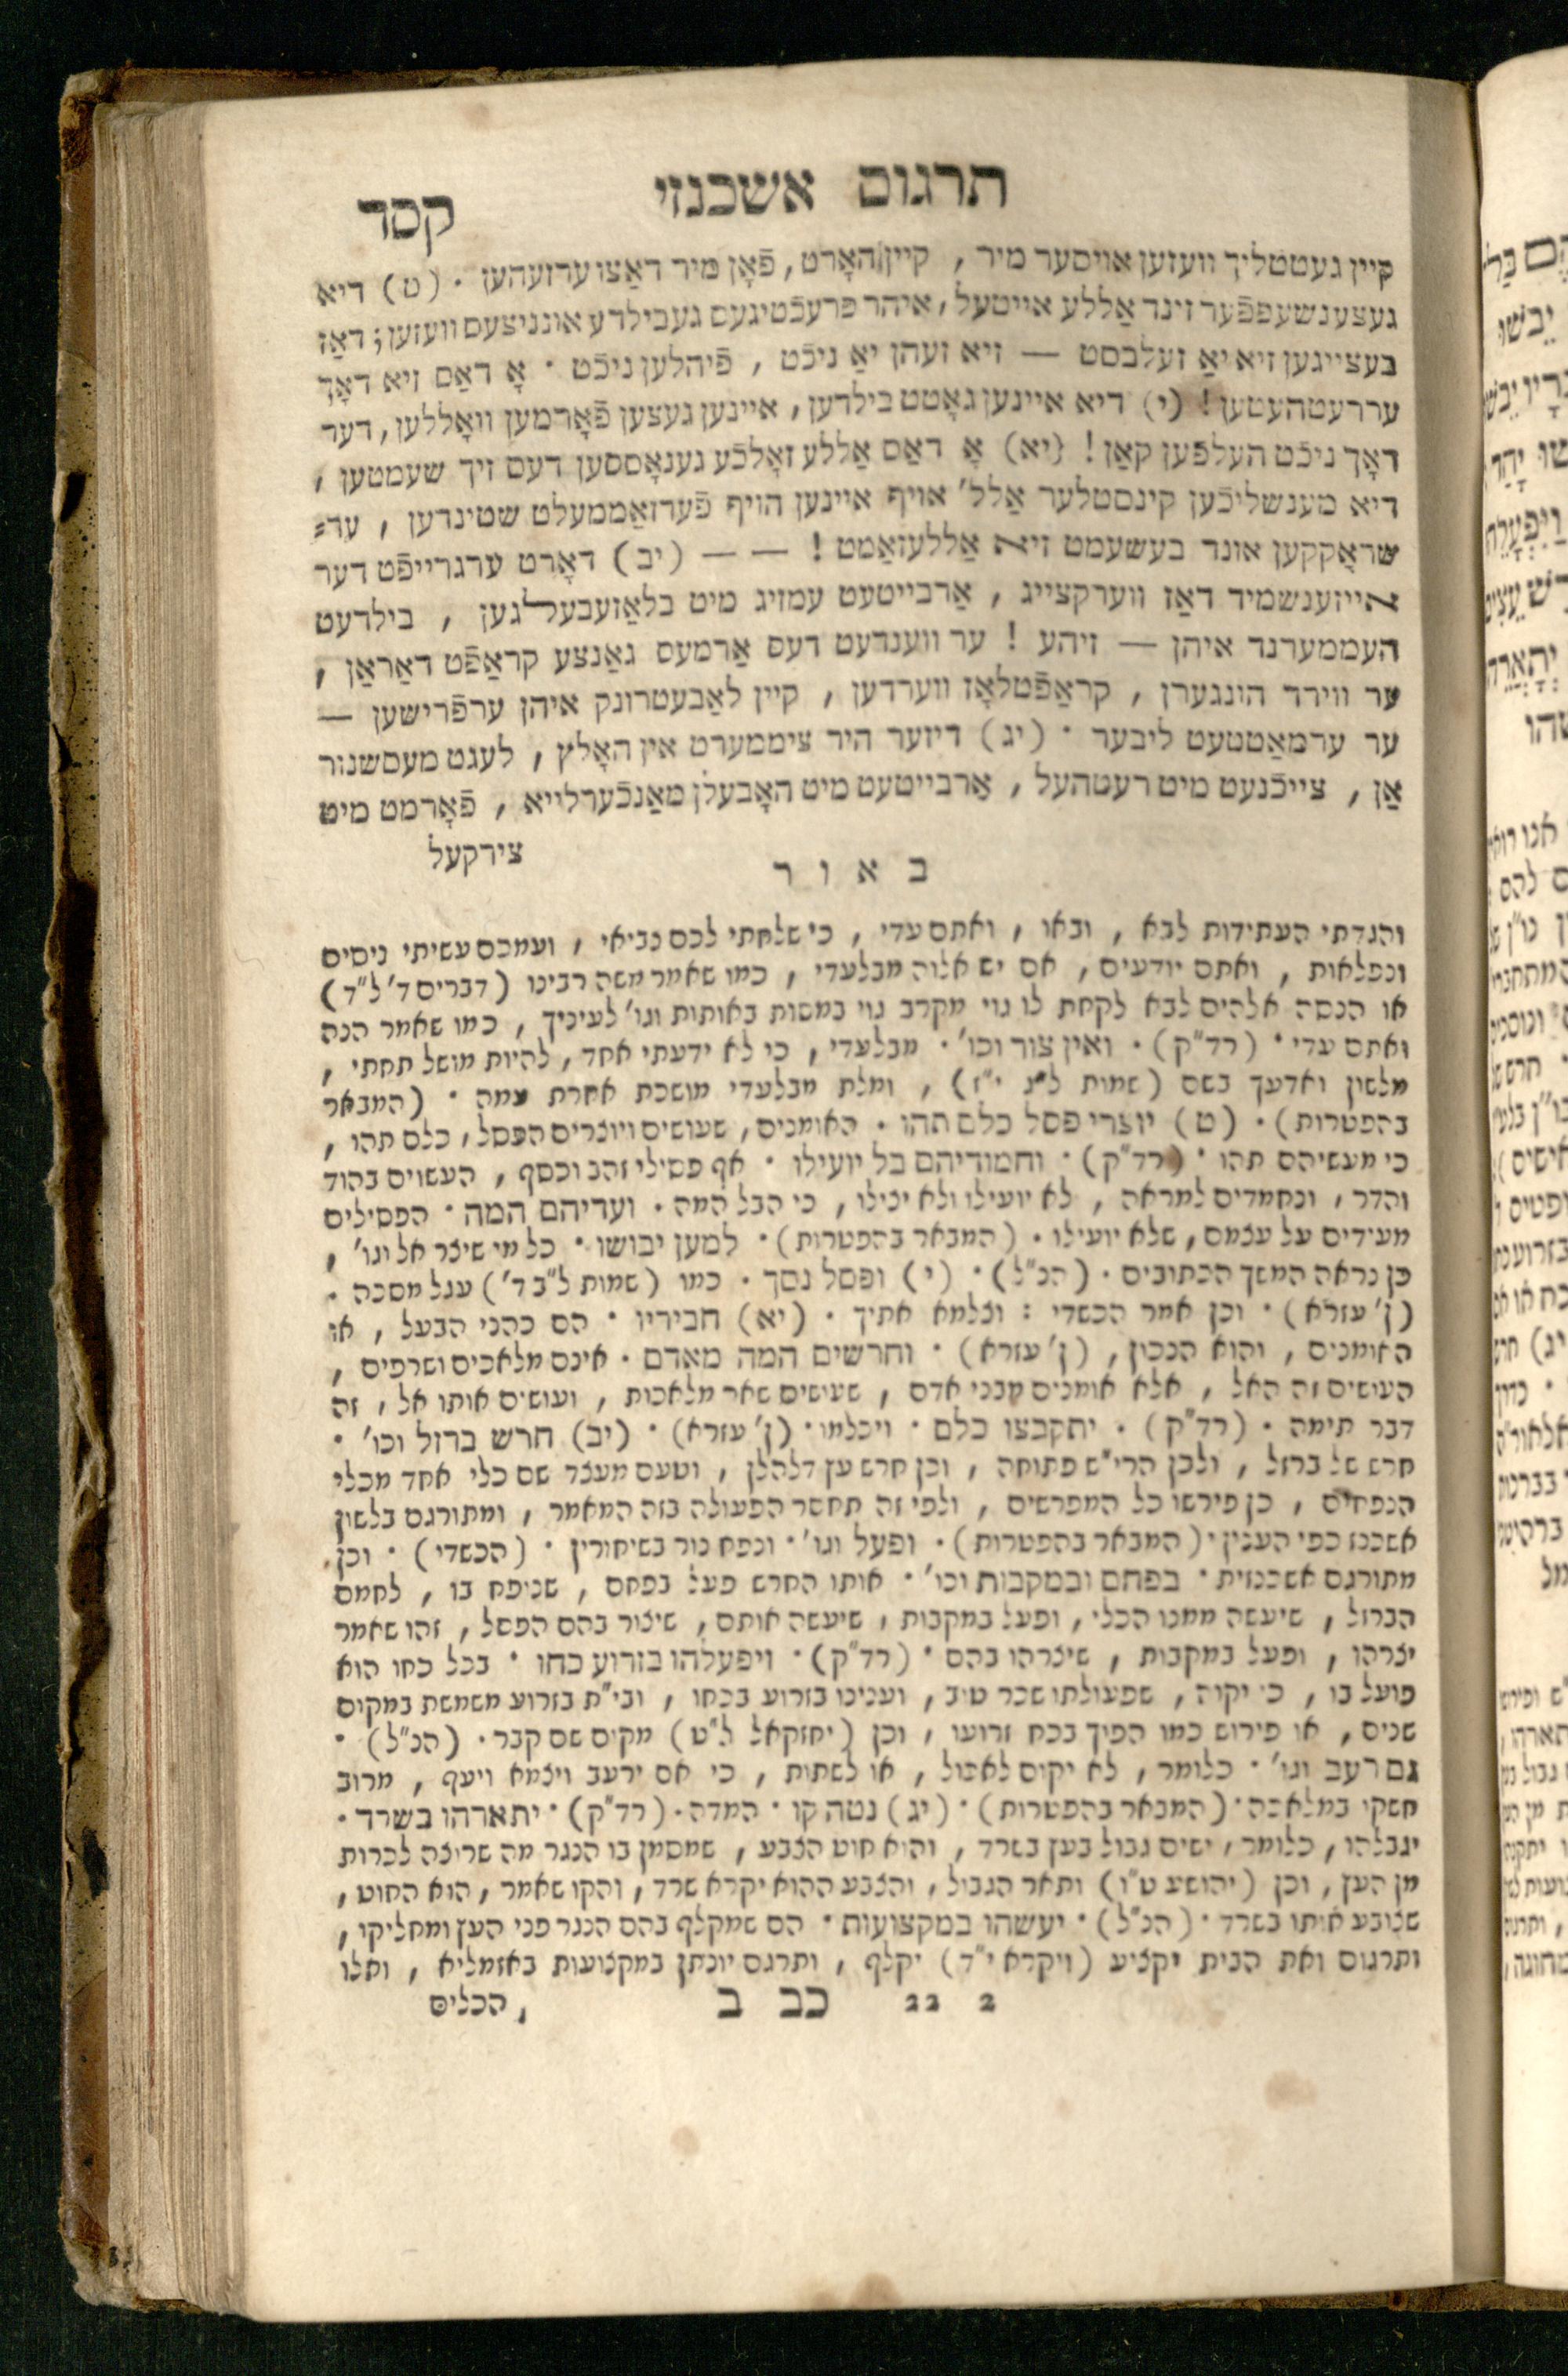 תרגום אשכנזי
קסד
קיין געטטליך וועזען אויסער מיר , קיין האָרט, פֿאָן מיר דאַצו ערזעהען . (ט) דיא
געצענשעפפֿער זינד אַללע אייטעל, איהר פרעכֿטיגעס געבילדע אונניצעס וועזען; דאַז
בעצייגען זיא יאַ זעלבסט — זיא זעהן יאַ ניכֿט , פֿיהלען ניכֿט . אָ דאַס זיא דאָך
עררעטהעטען! (י) דיא איינען גאָטט בילדען, איינען געצען פֿאָרמען וואָללען, דער
דאָך ניכֿט העלפֿען קאַן! (יא) אָ דאַס אַללע זאָלכֿע גענאָססען דעס זיך שעמטען ,
דיא מענשליכֿען קינסטלער אַלל' אויף איינען הויף פֿערזאַממעלט שטינדען , ער=
שראָקקען אונד בעשעמט זיא אַללעזאַמט ! — — (יב) דאָרט ערגרייפֿט דער
אייזענשמיד דאַז ווערקצייג , אַרבייטעט עמזיג מיט בלאַזעבעלגען , בילדעט
העממערנד איהן — זיהע ! ער ווענדעט דעס אַרמעס גאַנצע קראַפֿט דאַראַן ,
ער ווירד הונגערן , קראַפֿטלאָז ווערדען , קיין לאַבעטרונק איהן ערפֿרישען —
ער ערמאַטטעט ליבער . (יג) דיזער היר צימערט אין האָלץ , לעגט מעסשנור
אַן , צייכֿנעט מיט רעטהעל , אַרבייטעט מיט האָבעלן מאַנכֿערלייא , פֿאָרמט מיט
צירקעל
באור
והגדתי העתידות לבא , ובאו , ואתם עדי , כי שלחתי לכם נביאי , ועמכם עשיתי ניסים
ונפלאות , ואתם יודעים, אם יש אלוה מבלעדי , כמו שאמר משה רבינו (דברים ד' ל"ד)
או הנסה אלהים לבא לקחת לו גוי מקרב גוי במסות באותות וגו' לעיניך , כמו שאמר הנה
ואתם עדי . (רד"ק) . ואין צור וכו' . מבלעדי, כי לא ידעתי אחד, להיות מושל תחתי ,
מלשון ואדעך בשם (שמות ל"ג י"ז) , ומלת מבלעדי מושכת אחרת עמה . (המבאר
בהפטרות) . (ט) יוצרי פסל כלם תהו . האומנים, שעושים ויוצרים הפסל, כלם תהו ,
כי מעשיהם תהו . (רד"ק) . וחמודיהם בל יועילו . אף פסילי זהב וכסף , העשוים בהוד
והדר , ונחמדים למראה , לא יועילו ולא יצילו , כי הבל המה . ועדיהם המה . הפסילים
מעידים על עצמם, שלא יועילו . (המבאר בהפטרות) . למען יבושו . כל מי שיצר אל וגו' ,
כן נראה המשך הכתובים . (הנ"ל) . (י) ופסל נסך . כמו (שמות ל"ב ד') עגל מסכה .
(ן' עזרא) . וכן אמר הכשדי : וצלמא אתיך . (יא) חביריו . הם כהני הבעל , או
האומנים , והוא הנכון, (ן' עזרא) . וחרשים המה מאדם . אינם מלאכים ושרפים ,
העושים זה האל , אלא אומנים מבני אדם , שעושים שאר מלאכות , ועושים אותו אל , זה
דבר תימה . (רד"ק) . יתקבצו כלם . ויכלמו . (ן' עזרא) . (יב) חרש ברזל וכו' .
חרש של ברזל , ולכן הרי"ש פתוחה , וכן חרש עץ דלהלן , וטעם מעצד שם כלי אחד מכלי
הנפחים , כן פירשו כל המפרשים , ולפי זה תחסר הפעולה בזה המאמר , ומתורגם בלשון
אשכנז כפי הענין . (המבאר בהפטרות) . ופעל וגו' . ונפח נור בשיחורין . (הכשדי) . וכן
מתורגם אשכנזית . בפחם ובמקבות וכו' . אותו החרש פעל בפחם , שניפח בו , לחמם
הברזל , שיעשה ממנו הכלי, ופעל במקבות , שיעשה אותם, שיצור בהם הפסל , זהו שאמר
יצרהו , ופעל במקבות , שיצרהו בהם . (רד"ק) . ויפעלהו בזרוע כחו . בכל כחו הוא
פועל בו , כי יקוה , שפעולתו שכר טוב , וענינו בזרוע בכחו , ובי"ת בזרוע משמשת במקום
שנים, או פירוש כמו הפוך בכח זרועו , וכן (יחזקאל ל"ט) מקום שם קבר . (הנ"ל) .
גם רעב וגו' . כלומר , לא יקום לאכול , או לשתות , כי אם ירעב ויצמא ויעף , מרוב
חשקו במלאכה . (המבאר בהפטרות) . (יג) נטה קו . המדה . (רד"ק) . יתארהו בשרד .
יגבלהו, כלומר, ישים גבול בעץ בשרד , והוא חוט הצבע , שמסמן בו הנגר מה שרוצה לכרות
מן העץ , וכן (יהושע ט"ו) ותאר הגבול , והצבע ההוא יקרא שרד, והקו שאמר , הוא החוט ,
שצובע אותו בשרד . (הנ"ל) . יעשהו במקצועות . הם שמקלף בהם הנגר פני העץ ומחליקו ,
ותרגום ואת הבית יקציע (ויקרא י"ד) יקלף , ותרגם יונתן במקצועות באזמליא , ואלו
ב בב כב ב
הכלים